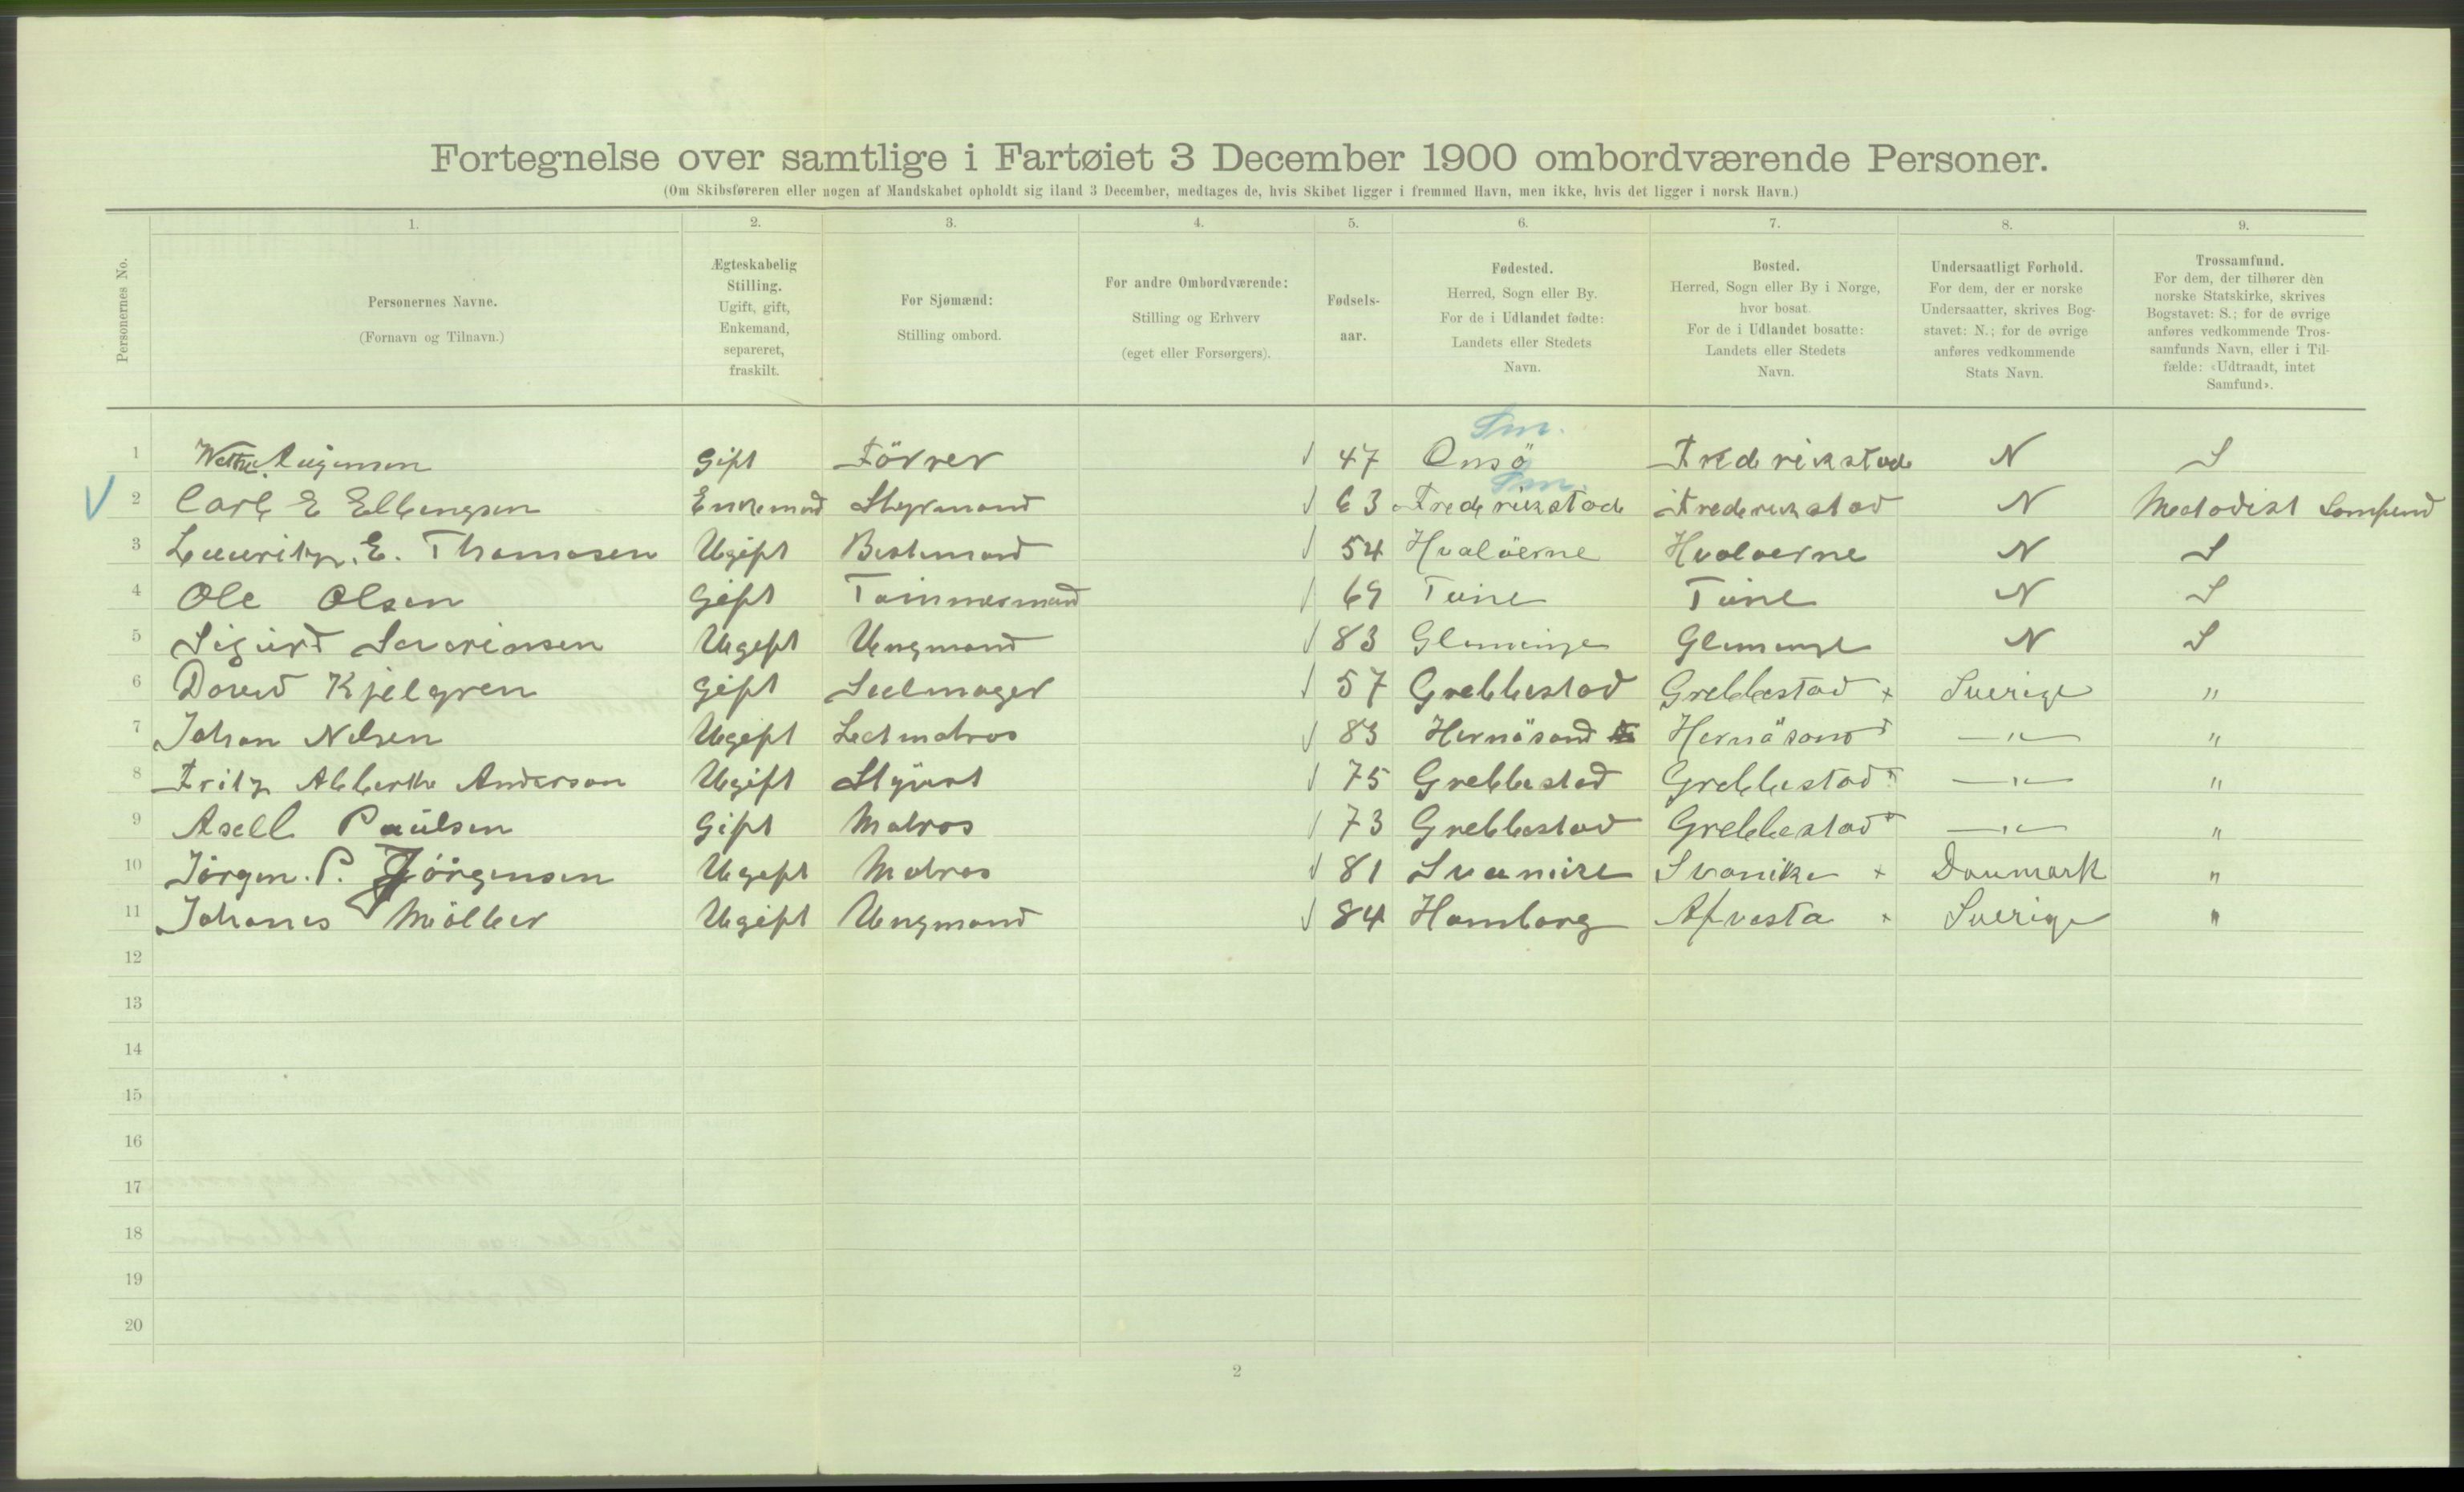 Fortegnelse over samtlige i Fartøiet 3 December 1900 ombordværende Personer.
(Om Skibsføreren eller nogen af Mandskabet opholdt sig iland 3 December, medtages de, hvis Skibet ligger i fremmed Havn, men ikke, hvis det ligger i norsk Havn.)
Personernes No.
1. 2. 3. 4. 5. 6. 7. 8. 9.
Personernes Navne.
(Fornavn og Tilnavn.)
Ægteskabelig
Stilling.
Ugift, gift,
Enkemand,
separeret,
fraskilt.
For Sjømænd:
Stilling ombord.
For andre Ombordværende:
Stilling og Erhverv
(eget eller Forsørgers).
Fødsels-
aar.
Fødested.
Herred, Sogn eller By.
For de i Udlandet fødte:
Landets eller Stedets
Navn.
Bosted.
Herred, Sogn eller By i Norge,
hvor bosat.
For de i Udlandet bosatte:
Landets eller Stedets
Navn.
Undersaatligt Forhold.
For dem, der er norske
Undersaatter, skrives Bog-
stavet: N.; for de øvrige
anføres vedkommende
Stats Navn.
Trossamfund.
For dem, der tilhører den
norske Statskirke, skrives
Bogstavet: S.; for de øvrige
anføres vedkommende Tros-
samfunds Navn, eller i Til-
fælde: «Udtraadt, intet
Samfund».
Sm.
1 Gift Förrer 47 Onsö Fredrikstad N S
Sm.
2 Carl E Ellengsen Enkemand Styrmand 63 Frederikstad Frederikstad N Metodist Samfund
3 Lauritz. E. Thomasen Ugift Bestmand 54 Hvalöerne Hvaloerne N S
4 Ole Olsen Gift Tømmermand 69 Tune Tune N S
5 Sigurd Severinsen Ugift Ungmand 83 Glemminge Glemminge N S
6 David Kjelgren Gift Seilmager 57 Grebbestad Grebbestad x Sverige "
7 Johan Nilsen Ugift Letmatros 83 Hernösand Hernösand —"— "
8 Fritz Alberth Anderson Ugift Styvert 75 Grebbestad Grebbestad —"— "
9 Axell Paulsen Gift Matros 73 Grebbestad Grebbestad —"— "
10 Jörgen. P. Jörgensen Ugift Matros 81 Svanike Svanike x Danmark "
11 Johanes Möller Ugift Ungmand 84 Hamborg Afvesta x Sverige "
12
13
14
15
16
17
18
19
20
2